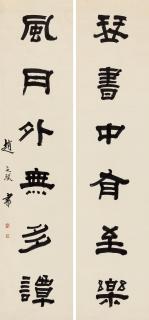 琹書中有至樂
風月外無多譚
趙 書